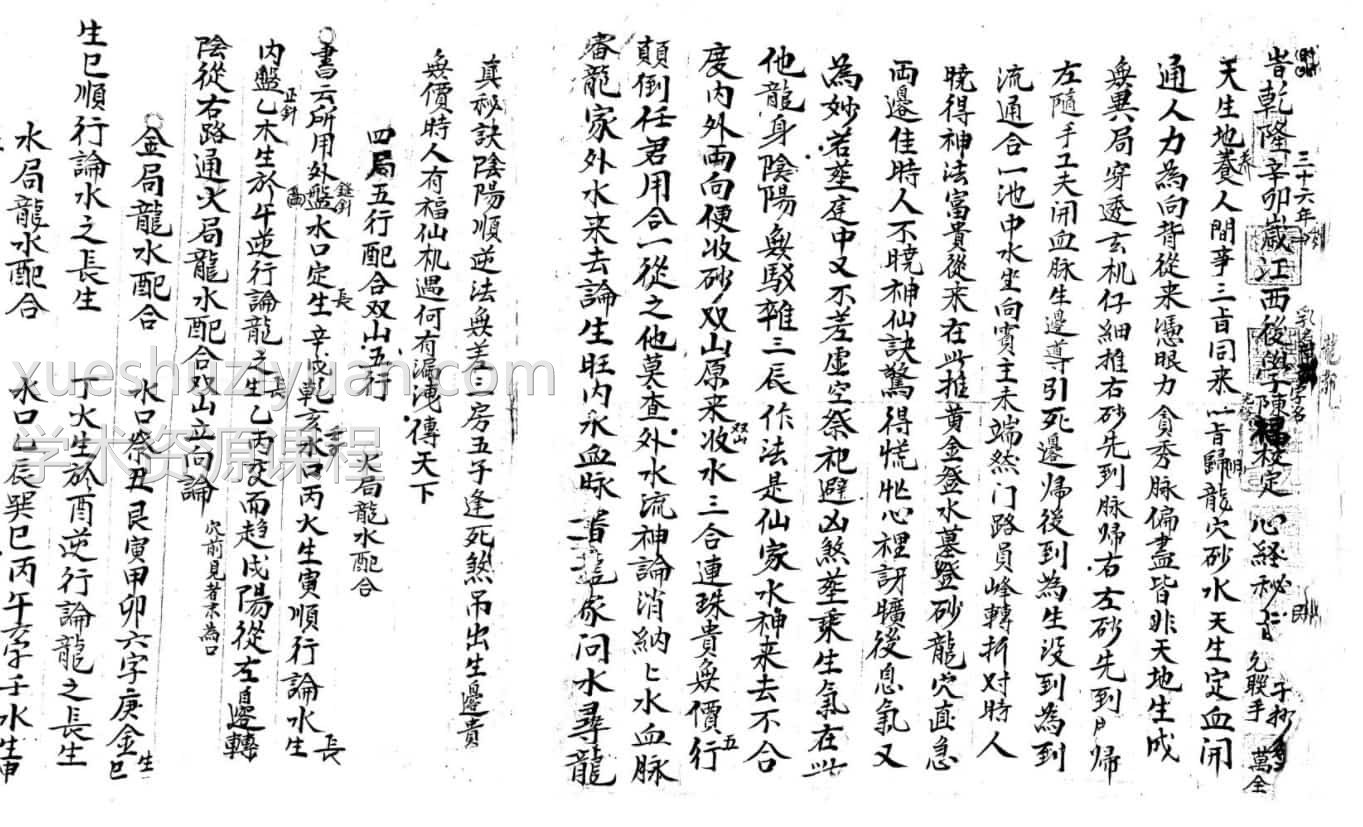 旹乾隆辛卯歲江西後學陳福校定 心経秘旨 允聯手
三十六年
天生地養人間事三旨同来一旨歸龍穴砂水天生定血開
通人力為向背從来憑眼力貪秀脉偏盡皆非天地生成
無異局穿透玄机仔細推右砂先到脉帰右左砂先到歸
左隨手工夫開血脉生邊導引死邊帰後到為生没到為到
流通合一池中水坐向賓主未端然门路員峰轉折对時人
曉得神法富貴從来在此推黄金登水墓登砂龍穴直急
両邊佳時人不曉神仙訣驚得慌忙心裡訝曠後息氣又
為妙若塟庭中又不差虚空祭祀避凶煞塟乗生氣在此
他龍身陰陽無駁雜三辰作法是仙家水神来去不合
度内外両向便收砂双山原来收水三合連珠貴無價行
顛倒任君用合一從之他莫查外水流神論消納匕水血脉
審龍家外水来去論生旺内水血脉 問水尋龍
真秘訣陰陽順逆法無差三房五子逢死煞吊出生邊貴
無價時人有福仙机遇何有漏洩傳天下
四局五行配合双山五行 火局龍水配合
書云所用外盤縫針水口定生長辛戌乾亥水口丙火生寅順行論水生長
内盤正針乙木生於午逆行論龍之生長乙丙交而趋戌陽從左邊轉
陰從右路通火局龍水配合双山立向論 穴前見者亦為口
金局龍水配合 水口癸丑艮寅甲卯六字庚金生巳
生巳順行論水之長生 丁火生於酉逆行論龍之長生
水局龍水配合 水口乙辰巽巳丙午六字壬水生申
xueshuziyuan.com
学术资原课程